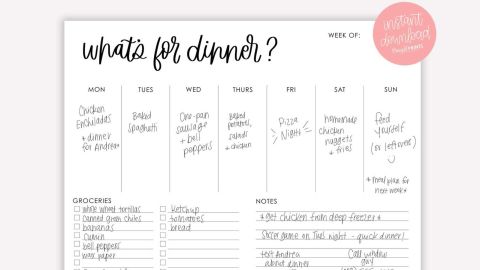 what's for dinner?
WEEK OF:
instant
download
MON
TUES
WED
THURS
FRI
SAT
SUN
Chicken
Enchiladas
+ dinner
for Andrea
Baked
Spaghetti
One-pan
sausage
+ bell
peppers
Baked
potatoes,
salads
+ chicken
Pizza
Night
homemade
chicken
nuggets
+ fries
feed
yourself
(or leftovers)
+ meal plan for
next week
GROCERIES
whole wheat tortillas
canned green chiles
bananas
cumin
bell peppers
wax paper
Ketchup
tomatoes
bread
NOTES
* get chicken from deep freezer *
Soccer game on Tues night - quick dinner!
text Andrea
about dinner
Call window
guy